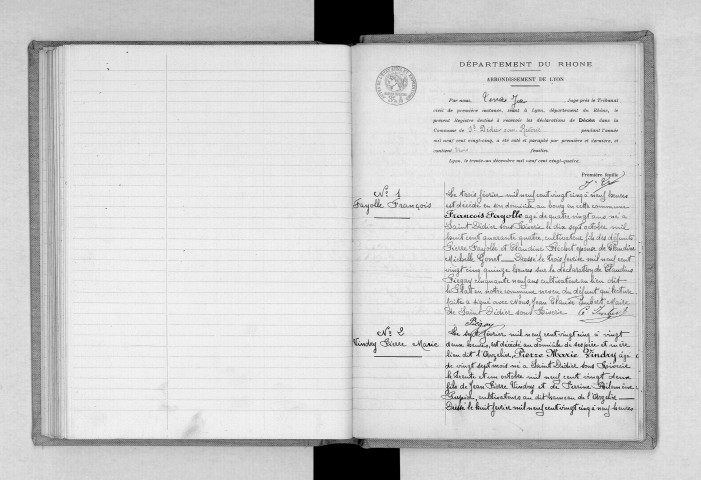 DÉPARTEMENT DU RHONE
ARRONDISSEMENT DE LYON
Par nous, Juge près le Tribunal
civil de première instance, séant à Lyon, département du Rhône, le
présent Registre destiné à recevoir les déclarations de Décès dans la
Commune de St Didier sous Riverie pendant l'année
mil neuf cent vingt-cinq, a été coté et paraphé par première et dernière, et
contient trois feuilles.
Lyon, le trente-un décembre mil neuf cent vingt-quatre.
Première feuille
No 1
Fayolle François
Le trois février mil neuf cent vingt cinq à neuf heures
est décédé en son domicile au bourg en cette commune
François Fayolle agé de quatre vingt ans né à
Saint Didier sous Riverie le dix sept octobre mil
huit cent quarante quatre, cultivateur fils des défunts
Pierre Fayolle et Claudine époux de Claudine
Michelle Dressé le trois février mil neuf cent
vingt cinq quinze heures sur la déclaration de Claudius
Piégay cinquante ans cultivateur au lieu dit
le en notre commune neveu du défunt qui lecture
faite a signé avec Nous, Jean Claude Imbert Maire
de Saint Didier sous Riverie
Piégay
No 2
Vindry Pierre Marie
Le sept février mil neuf cent vingt cinq à vingt
deux heures, est décédé au domicile de ses père et mère
lieu dit Pierre Marie Vindry âgé
de vingt sept mois né à Saint Didier sous Riverie
le trente et un octobre mil neuf cent vingt deux
fils de Jean Pierre Vindry et de Perrine Philomène
cultivateurs au dit hameau de
Dressé le huit février mil neuf cent vingt cinq à neuf heures